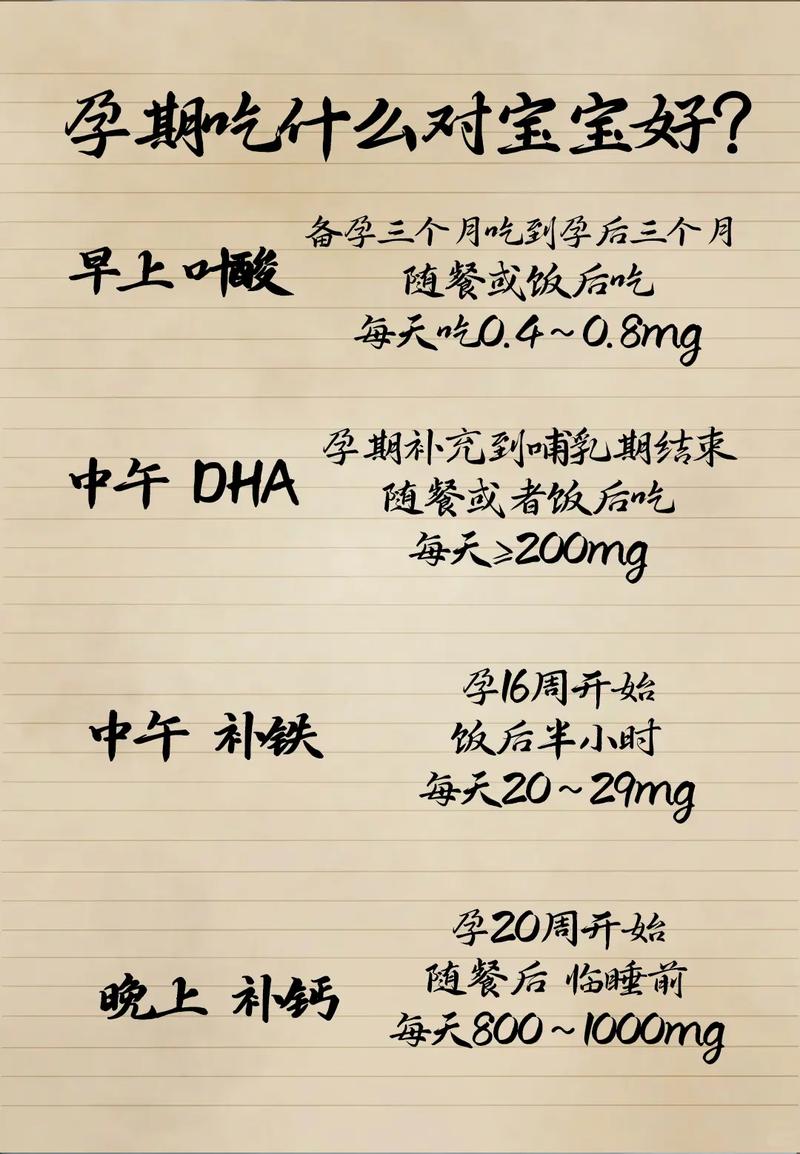 孕期吃什么对宝宝好?
早上 叶酸
备孕三个月吃到孕后三个月
随餐或饭后吃
每天吃0.4~0.8mg
中午 DHA
孕期补充到哺乳期结束
随餐或者饭后吃
每天≥200mg
中午 补铁
孕16周开始
饭后半小时
每天20~29mg
晚上 补钙
孕20周开始
随餐后 临睡前
每天800~1000mg